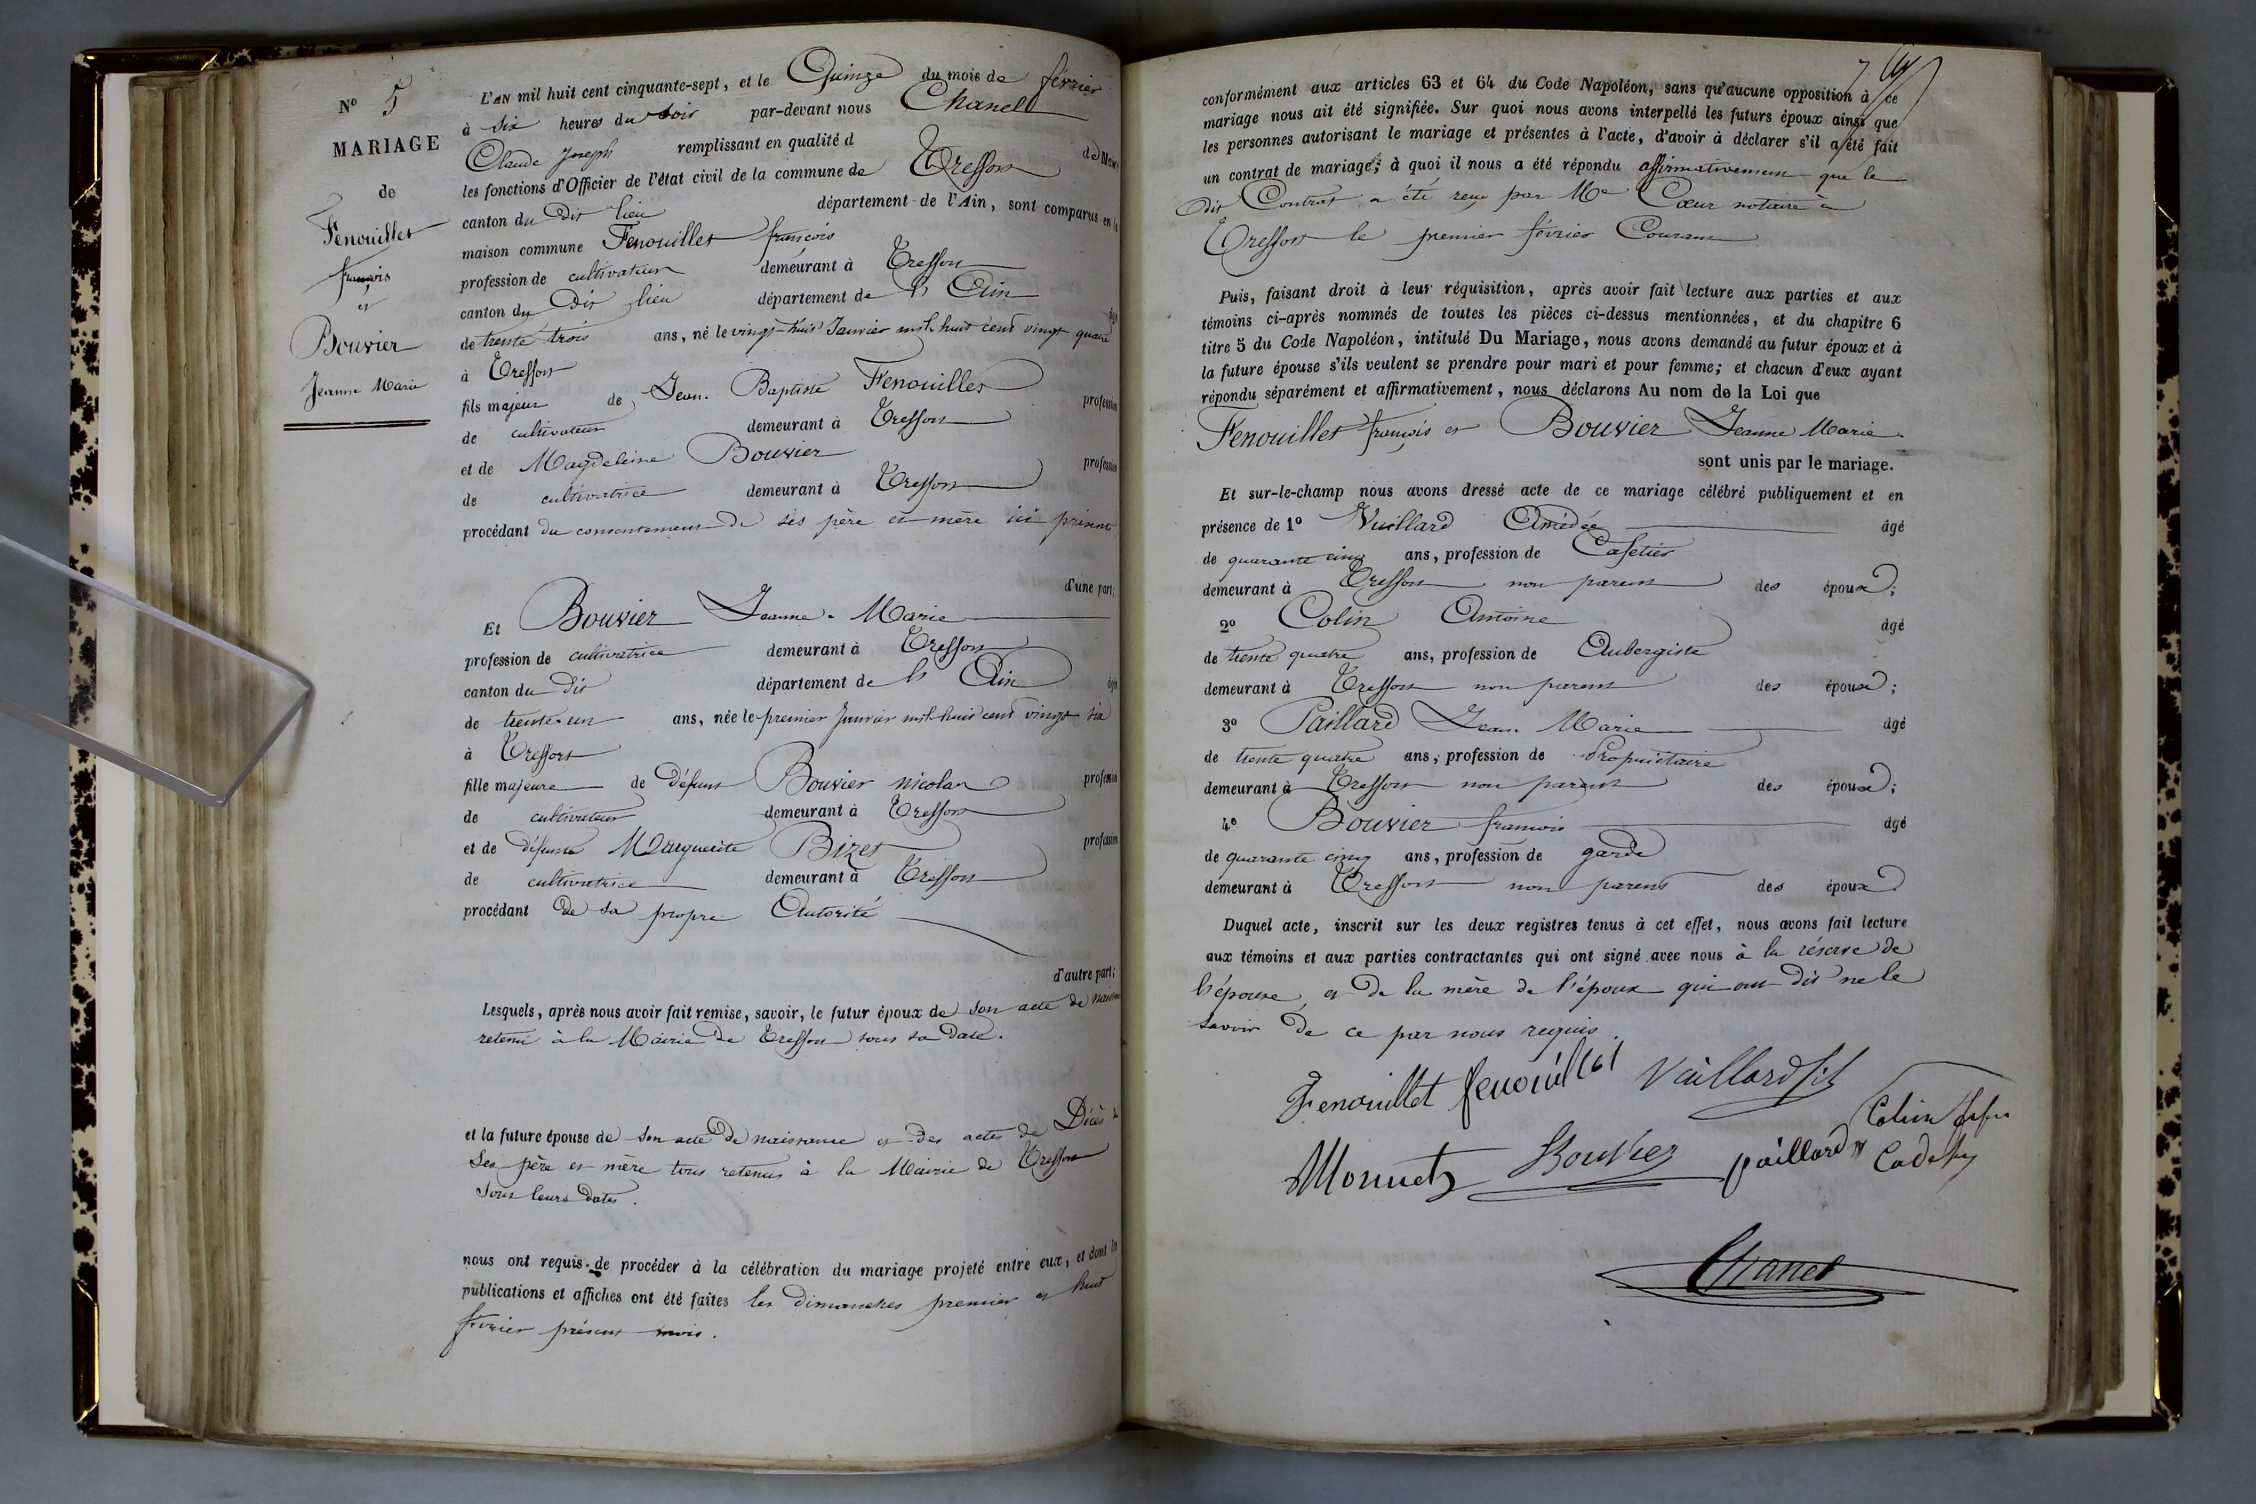 N° 5
MARIAGE
de
Fenouillet
françois
et
Bouvier
Jeanne Marie
L'AN mil huit cent cinquante-sept, et le Quinze du mois de février
à six heures du soir par-devant nous Chanel
Claude Joseph remplissant en qualité d de Maire
les fonctions d'Officier de l'état civil de la commune de Treffort
canton du dit lieu département de l'Ain, sont comparus en la
maison commune Fenouillet françois
profession de cultivateur demeurant à Treffort
canton du Dit lieu département de l'Ain âgé
de trente trois ans, né le vingt-huit Janvier mil huit cent vingt quatre
à Treffort
fils majeur de Jean-Baptiste Fenouillet profession
de cultivateur demeurant à Treffort
et de Magdeleine Bouvier profession
de cultivatrice demeurant à Treffort
procédant du consentement de ses père et mère ici présents
d'une part;
Et Bouvier Jeanne-Marie
profession de cultivatrice demeurant à Treffort
canton du dit département de l'Ain âgée
de trente-un ans, née le premier Janvier mil huit cent vingt six
à Treffort
fille majeure de défunt Bouvier nicolas profession
de cultivateur demeurant à Treffort
et de défunte Marguerite Bizet profession
de cultivatrice demeurant à Treffort
procédant de sa propre Autorité
d'autre part;
Lesquels, après nous avoir fait remise, savoir, le futur époux de son acte de naissance
retenu à la Mairie de Treffort sous sa date.
et la future épouse de son acte de naissance et des actes de Décès de
Ses père et mère tous retenus à la Mairie de Treffort
sous leurs dates.
nous ont requis de procéder à la célébration du mariage projeté entre eux, et dont les
publications et affiches ont été faites les dimanches premier et huit
février présent mois.
conformément aux articles 63 et 64 du Code Napoléon, sans qu'aucune opposition à ce
mariage nous ait été signifiée. Sur quoi nous avons interpellé les futurs époux ainsi que
les personnes autorisant le mariage et présentes à l'acte, d'avoir à déclarer s'il a été fait
un contrat de mariage; à quoi il nous a été répondu affirmativement que le
Dit Contrat a été reçu par Me Cœur notaire à
Treffort le premier février Courant
Puis, faisant droit à leur réquisition, après avoir fait lecture aux parties et aux
témoins ci-après nommés de toutes les pièces ci-dessus mentionnées, et du chapitre 6
titre 5 du Code Napoléon, intitulé Du Mariage, nous avons demandé au futur époux et à
la future épouse s'ils veulent se prendre pour mari et pour femme; et chacun d'eux ayant
répondu séparément et affirmativement, nous déclarons Au nom de la Loi que
Fenouillet françois et Bouvier Jeanne Marie
sont unis par le mariage.
Et sur-le-champ nous avons dressé acte de ce mariage célébré publiquement et en
présence de 1° Vuillard Amédée âgé
de quarante cinq ans, profession de Cafetier
demeurant à Treffort non parent des époux;
2° Colin Antoine âgé
de trente quatre ans, profession de Aubergiste
demeurant à Treffort non parent des époux;
3° Paillard Jean Marie âgé
de trente quatre ans, profession de Propriétaire
demeurant à Treffort non parent des époux;
4° Bouvier françois âgé
de quarante cinq ans, profession de garde
demeurant à Treffort non parent des époux
Duquel acte, inscrit sur les deux registres tenus à cet effet, nous avons fait lecture
aux témoins et aux parties contractantes qui ont signé avec nous à la réserve de
l'épouse, et de la mère de l'époux qui ont dit ne le
savoir de ce par nous requis.
Fenouillet fenouillet Vuillard fils
Colin
Monnet Bouvier paillard Cadet
Chanel